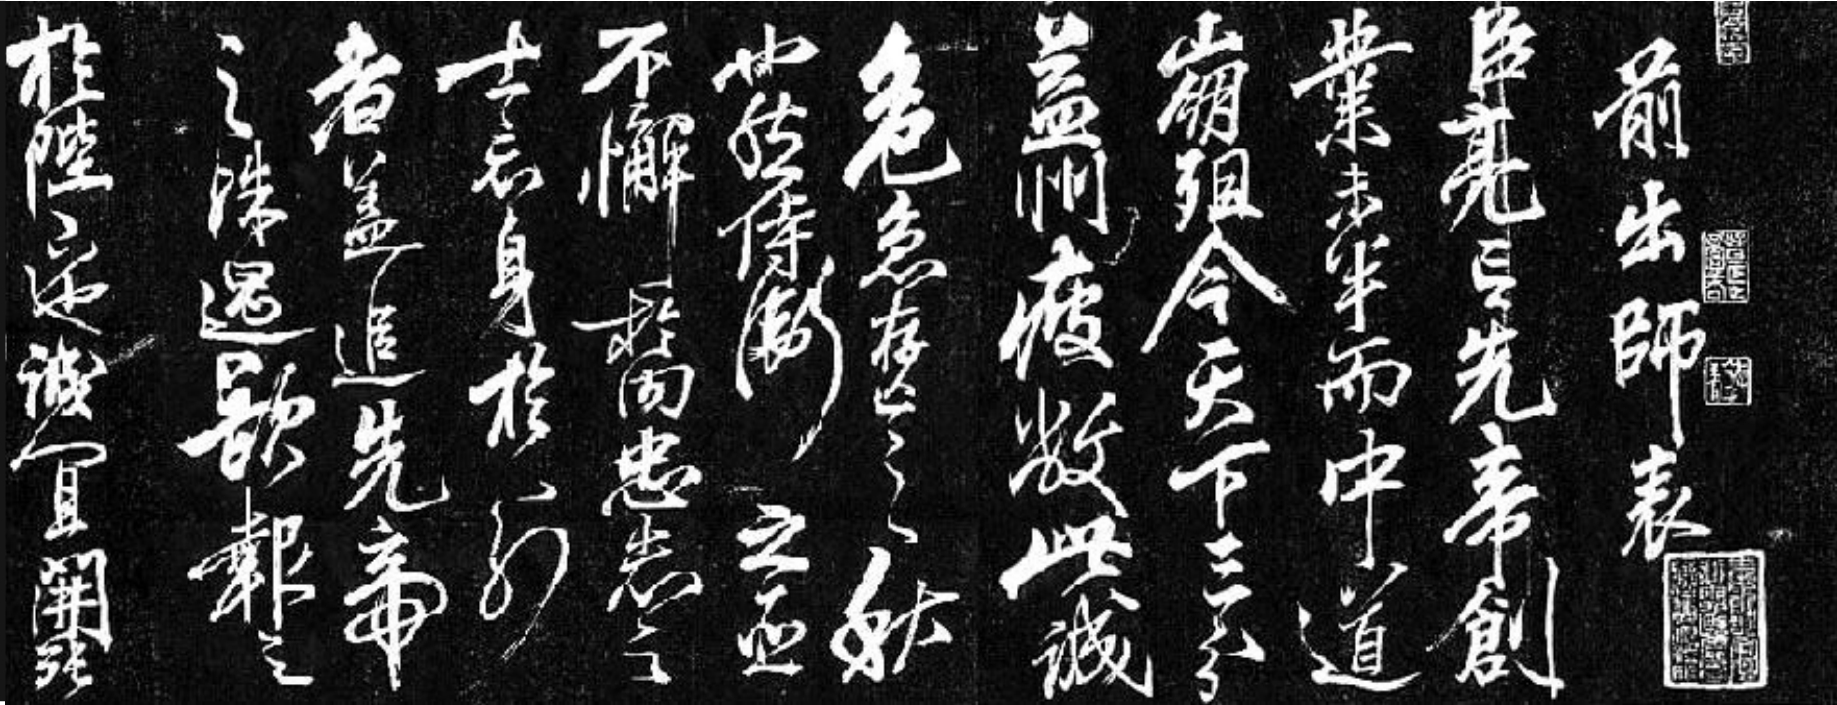 前出師表
臣亮言先帝創
業未半而中道
崩殂今天下三分
益州疲敝此誠
危急存亡之秋
也然侍衛之臣
不懈於內忠志之
士忘身於外
者蓋追先帝
之殊遇欲報之
於陛下也誠宜開張